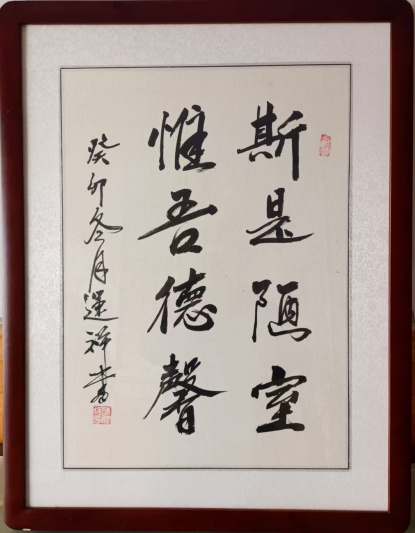 斯是陋室
惟吾德馨
癸卯冬月運祥書